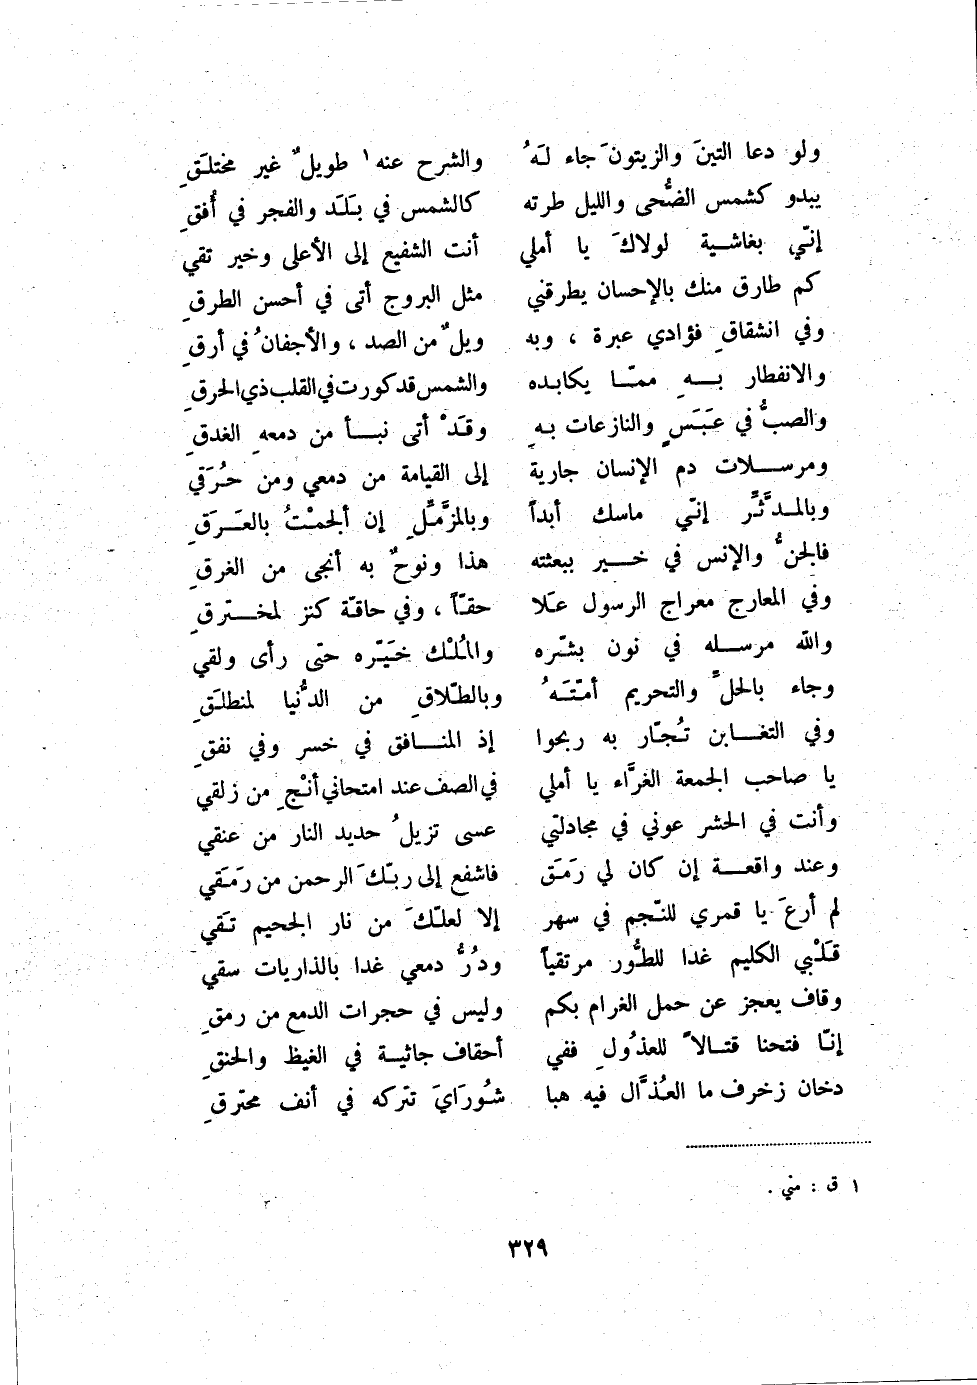 ولو دعا التينَ والزيتونَ جاء لَهُ والشرح عنه١ طويلٌ غير مختلَقِ
يبدو كشمس الضُّحى والليل طرته كالشمس في بَلَد والفجر في أُفقِ
إنّي بغاشية لولاكَ يا أملي أنت الشفيع إلى الأعلى وخير تقي
كم طارق منك بالإحسان يطرقني مثل البروج أتى في أحسن الطرقِ
وفي انشقاقِ فؤادي عبرة ، وبه ويلٌ من الصد ، والأجفانُ في أرقِ
والانفطار بهِ ممّا يكابده والشمس قد كورت في القلب ذي الحرقِ
والصبُّ في عَبَسٍ والنازعات بهِ وقَدْ أتى نبأ من دمعهِ الغدقِ
ومرسلات دم الإنسان جارية إلى القيامة من دمعي ومن حُرَقي
وبالمدَّثِّر إنّي ماسك أبداً وبالمزَّمِّلِ إن ألجمْتُ بالعَرَقِ
فالجنُّ والإنس في خير ببعثته هذا ونوحٌ به أنجى من الغرقِ
وفي المعارج معراج الرسول عَلا حقّاً ، وفي حاقّة كنز لمخترقِ
والله مرسله في نون بشّره والمُلْك خَيّره حتى رأى ولقي
وجاء بالحلِّ والتحريم أمّتَهُ وبالطّلاقِ من الدُّنيا لمنطلَقِ
وفي التغابن تُجّار به ربحوا إذ المنافق في خسر وفي نفقِ
يا صاحب الجمعة الغرَّاء يا أملي في الصف عند امتحاني أنْجِ من زلقي
وأنت في الحشر عوني في مجادلتي عسى تزيلُ حديد النار من عنقي
وعند واقعة إن كان لي رَمَق فاشفع إلى ربّكَ الرحمن من رَمَقي
لم أرعَ يا قمري للنّجم في سهر إلا لعلّكَ من نار الجحيم تَقي
قَلْبي الكليم غدا للطُّور مرتقياً ودُرُّ دمعي غدا بالذاريات سقي
وقاف يعجز عن حمل الغرام بكم وليس في حجرات الدمع من رمقِ
إنّا فتحنا قتالاً للعذُولِ ففي أحقاف جاثية في الغيظ والحنقِ
دخان زخرف ما العُذَّال فيه هبا شُورَايَ تتركه في أنف محترقِ
١ ق : مني .
٣٢٩